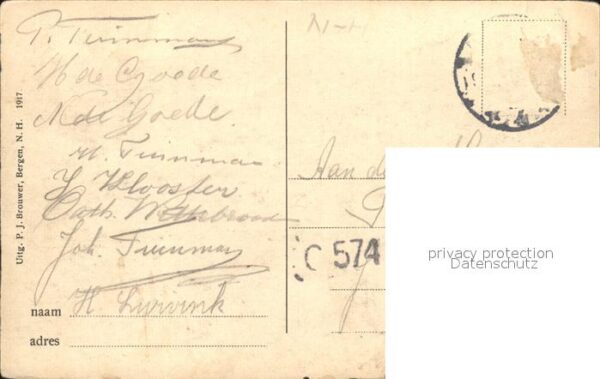 P. Tuinman
H de Goode
N de Goede.
M. Tuinman
Y Klooster
Cath.
Joh. Tuinman
naam H Lurvink
adres
Uitg. P. J. Brouwer, Bergen, N. H. 1917
N-H
Aan de
574
privacy protection
Datenschutz